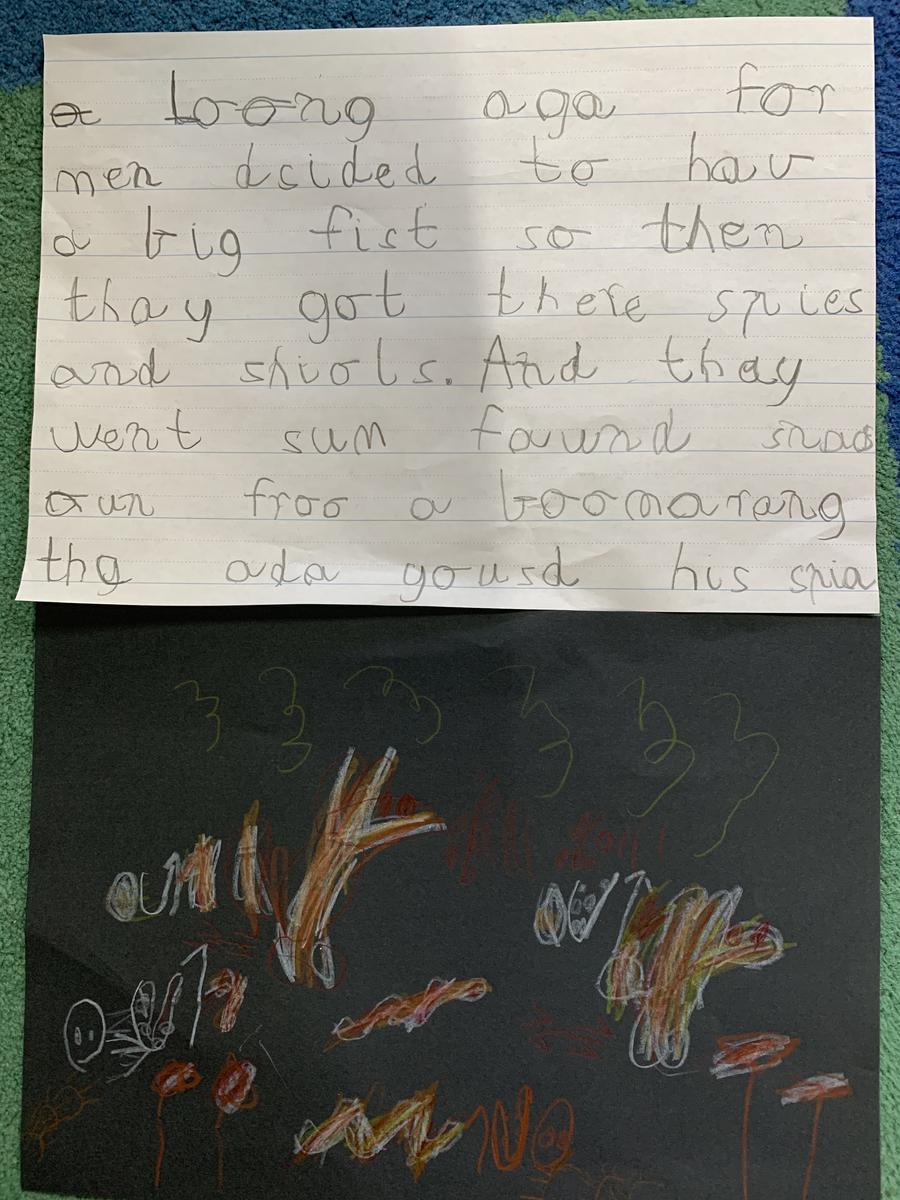 a Loong aga for
men dcided to hav
a big fict so then
thay got there spies
and shiols. And thay
went sum faund snacs
aun froo a boomarang
thg ada yousd his spia